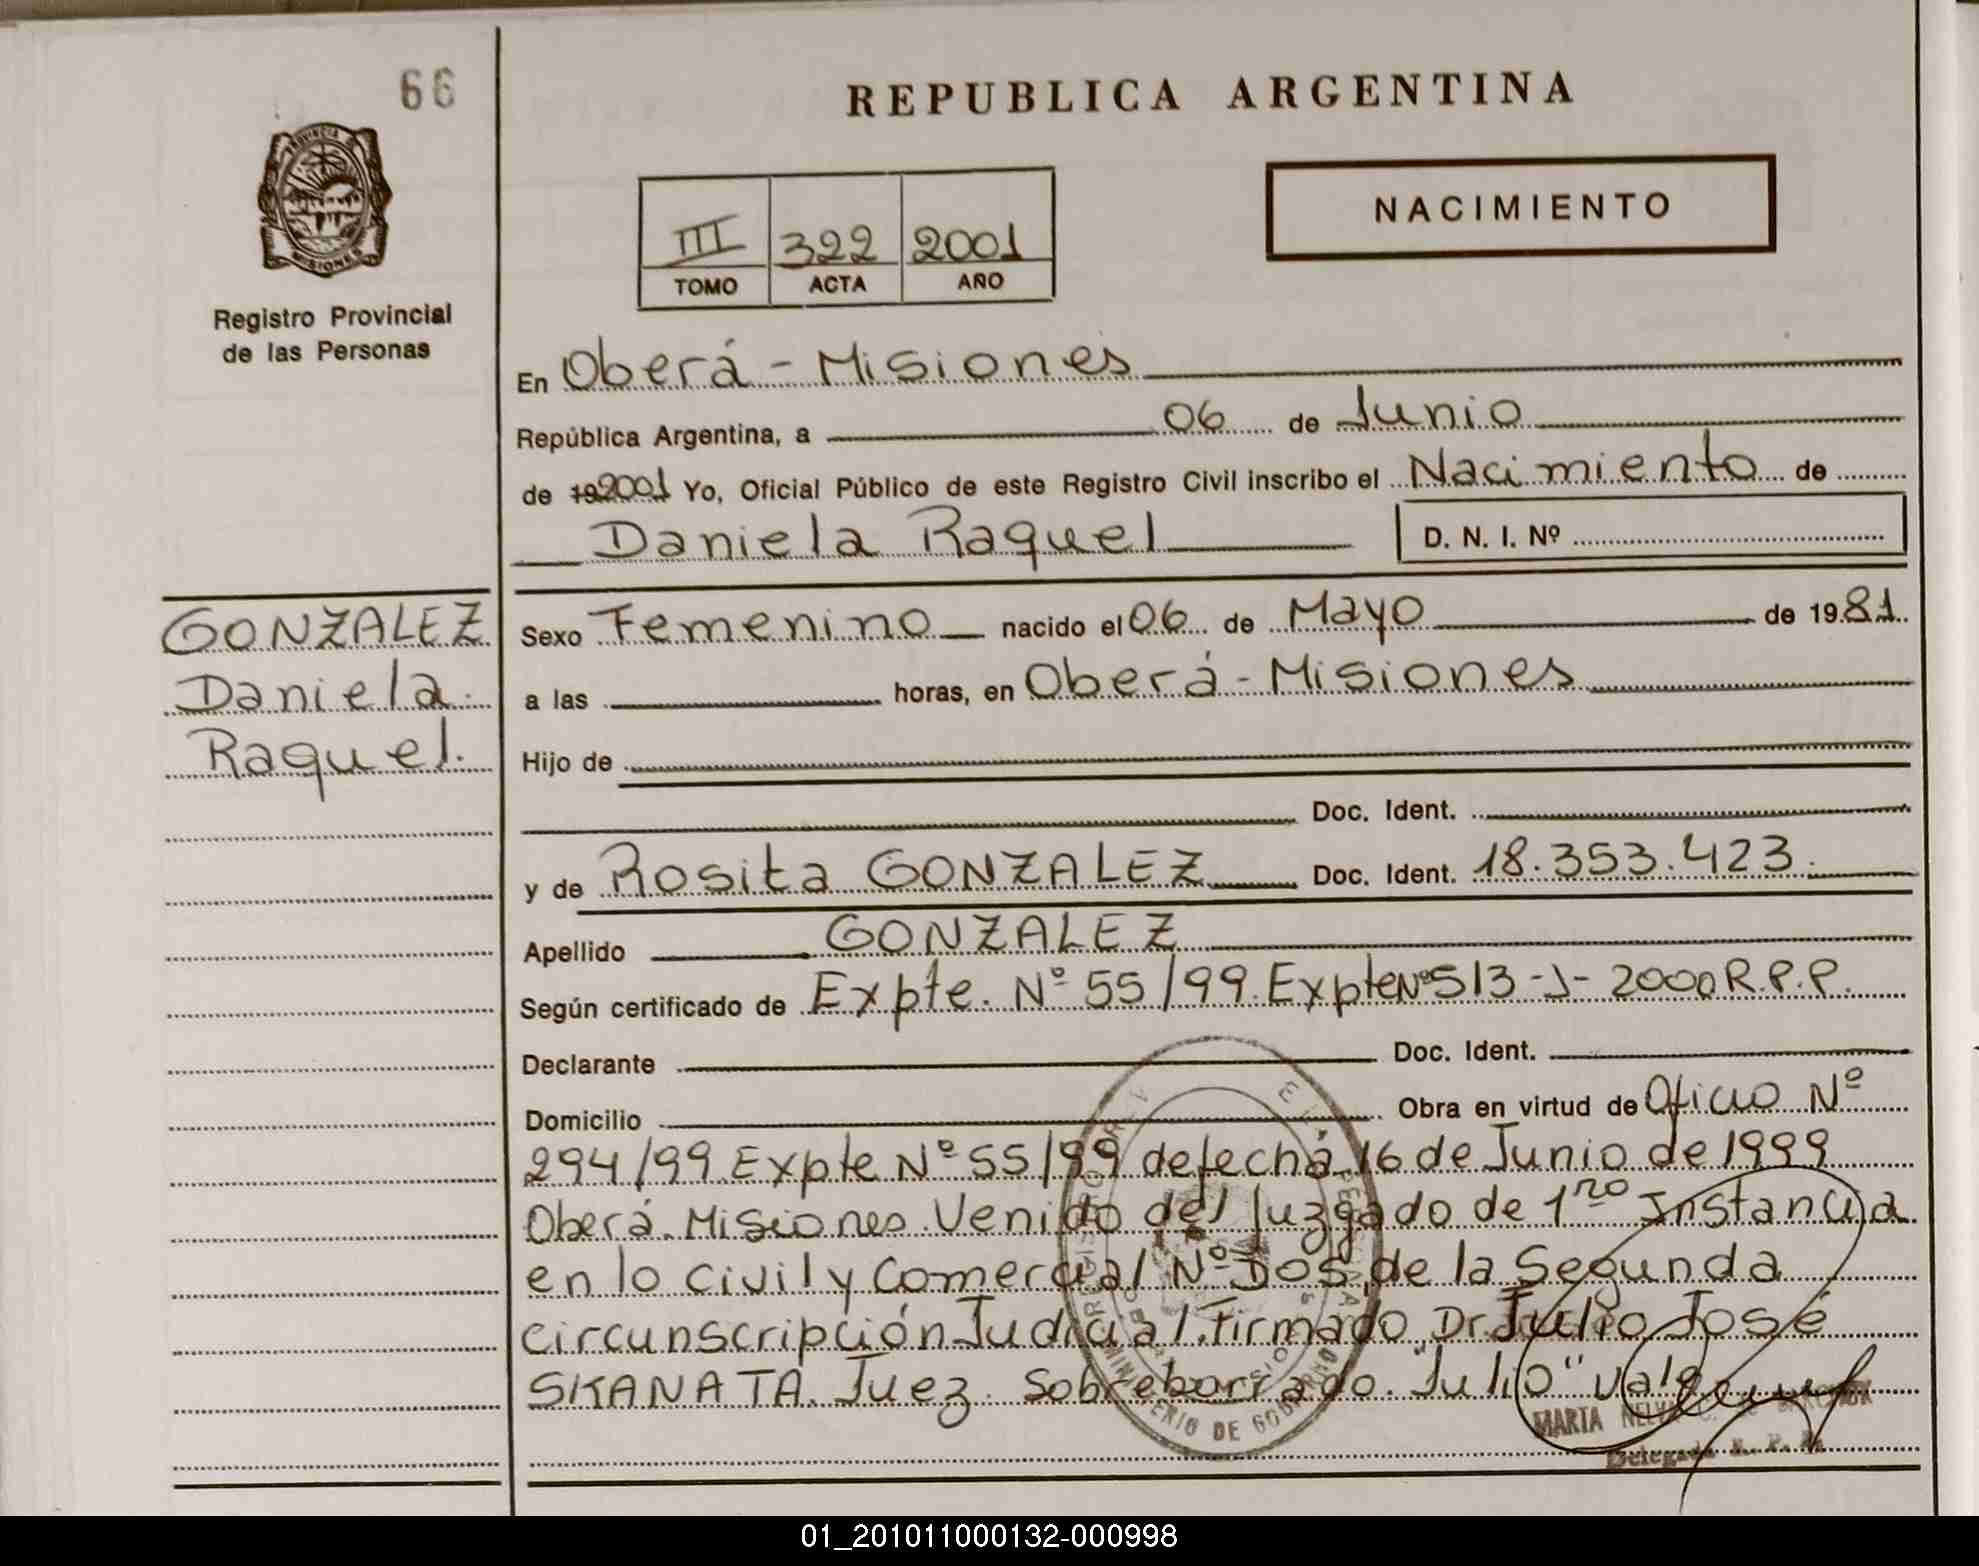 66
REPUBLICA ARGENTINA
PROVINCIA D
MISIONES
NACIMIENTO
III 322 2001
TOMO ACTA AÑO
Registro Provincial
de las Personas
En Oberá - Misiones
República Argentina, a 06 de Junio
de 192001 Yo, Oficial Público de este Registro Civil inscribo el Nacimiento de
Daniela Raquel D. N. I. Nº
GONZALEZ
Daniela
Raquel.
Sexo Femenino nacido el 06 de Mayo de 1981.
a las horas, en Oberá - Misiones
Hijo de
Doc. Ident.
y de Rosita GONZALEZ Doc. Ident. 18.353.423.
Apellido GONZALEZ
Según certificado de Expte. Nº 55/99. Expte Nº 513-J-2000 R.P.P.
Declarante Doc. Ident.
Domicilio Obra en virtud de Oficio Nº
294/99. Expte Nº 55/99 de fecha 16 de Junio de 1999
Oberá. Misiones. Venido del Juzgado de 1ro Instancia
en lo civil y Comercial Nº DOS de la Segunda
circunscripción Judicial. Firmado Dr. Julio José
SKANATA. Juez. Sobreborrado. "Julio" Vale
MINISTERIO DE GOBIERNO
MARTA
Delegada R. P. P.
01_201011000132-000998